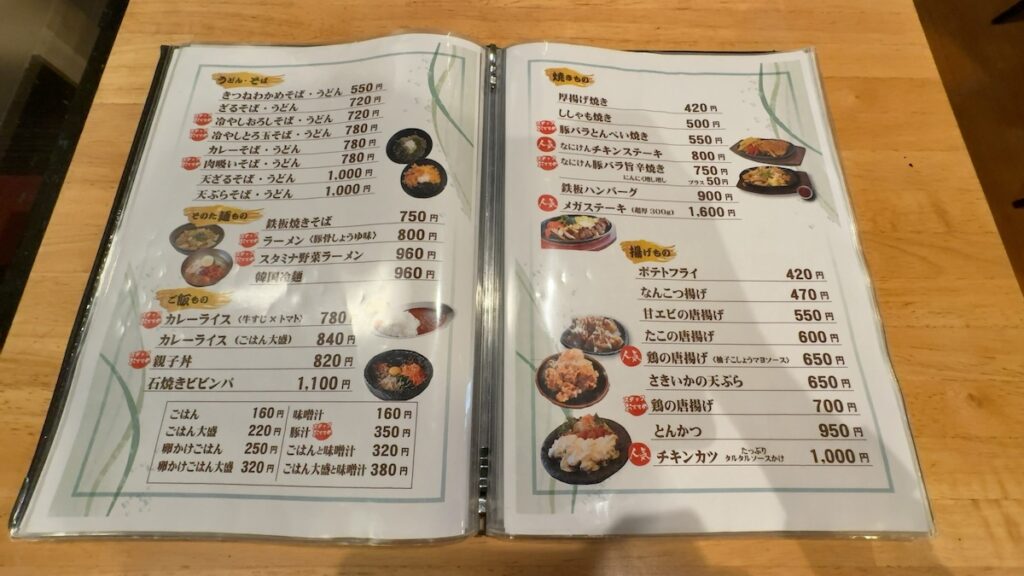 うどん・そば
きつねわかめそば・うどん 550円
ざるそば・うどん 720円
冷やしおろしそば・うどん 720円
冷やしとろ玉そば・うどん 780円
カレーそば・うどん 780円
肉吸いそば・うどん 780円
天ざるそば・うどん 1,000円
天ぷらそば・うどん 1,000円
そのた麺もの
鉄板焼きそば 750円
ラーメン〈豚骨しょうゆ味〉 800円
スタミナ野菜ラーメン 960円
韓国冷麺 960円
ご飯もの
カレーライス〈牛すじ×トマト〉 780円
カレーライス〈ごはん大盛〉 840円
親子丼 820円
石焼きビビンバ 1,100円
ごはん 160円
ごはん大盛 220円
卵かけごはん 250円
卵かけごはん大盛 320円
味噌汁 160円
豚汁 350円
ごはんと味噌汁 320円
ごはん大盛と味噌汁 380円
焼きもの
厚揚げ焼き 420円
ししゃも焼き 500円
豚バラとんぺい焼き 550円
人気 なにけんチキンステーキ 800円
なにけん豚バラ旨辛焼き 750円
にんにく増し増し プラス50円
鉄板ハンバーグ 900円
人気 メガステーキ〈超厚300g〉 1,600円
揚げもの
ポテトフライ 420円
なんこつ揚げ 470円
甘エビの唐揚げ 550円
たこの唐揚げ 600円
人気 鶏の唐揚げ〈柚子こしょうマヨソース〉 650円
さきいかの天ぷら 650円
鶏の唐揚げ 700円
とんかつ 950円
人気 チキンカツ たっぷりタルタルソースかけ 1,000円